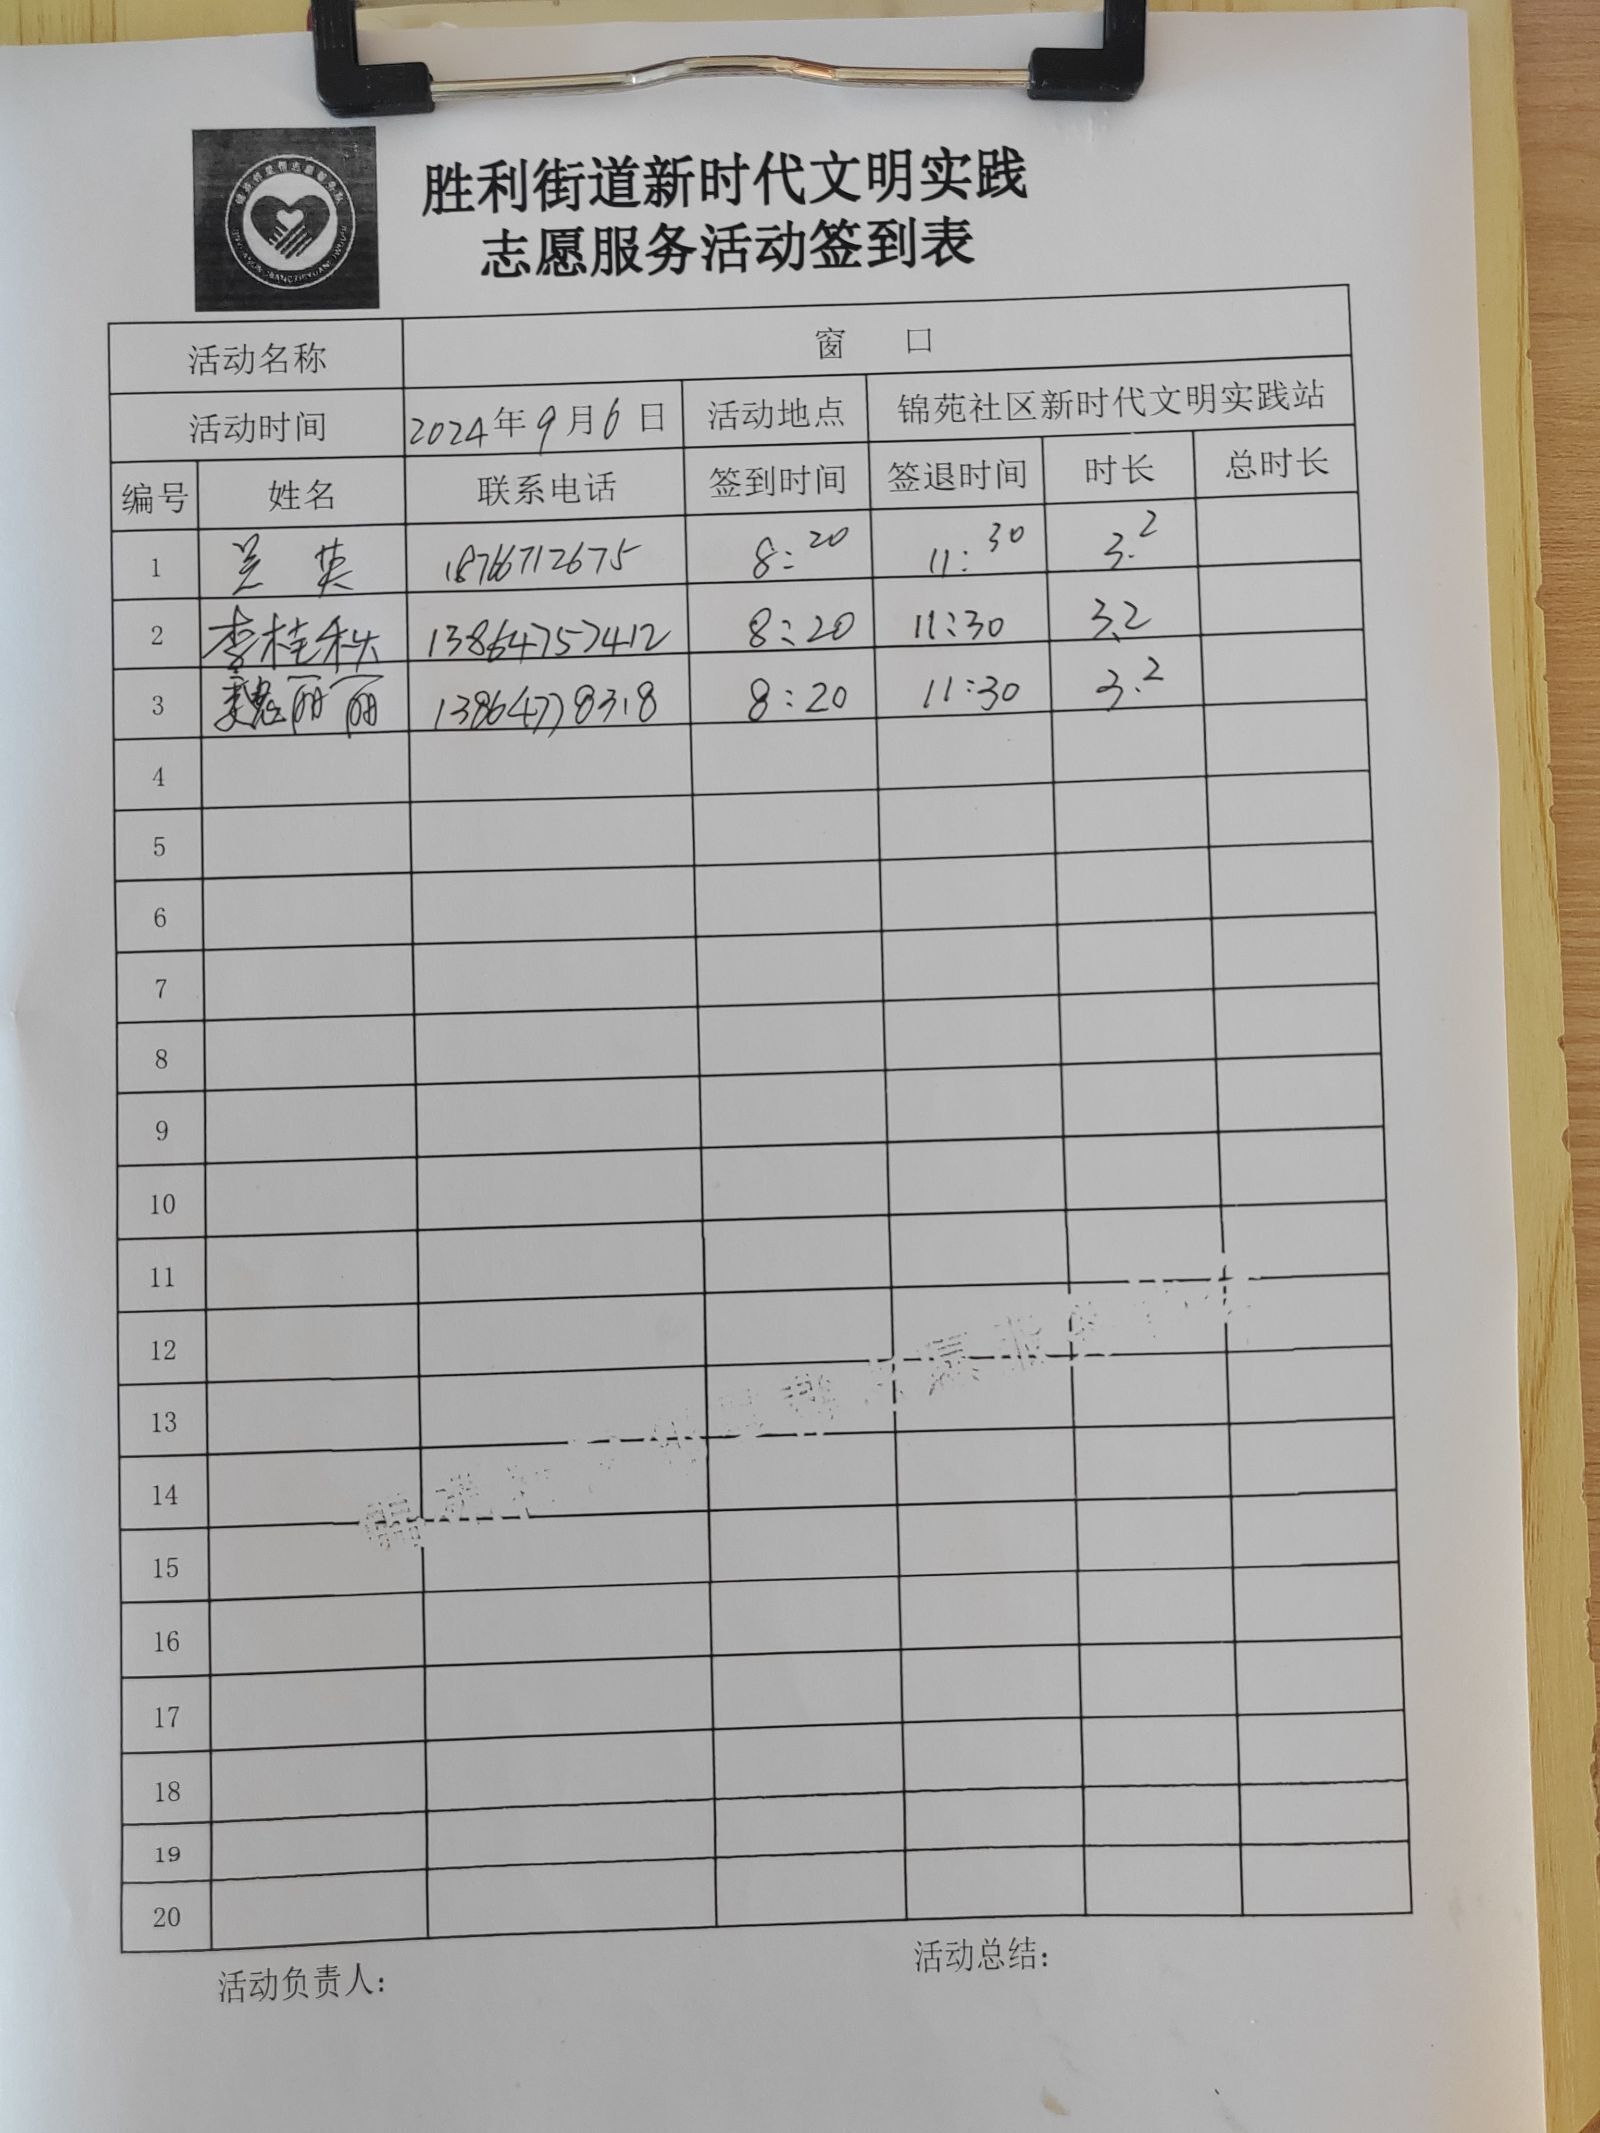 胜利街道新时代文明实践
志愿服务活动签到表
活动名称 窗 口
活动时间 2024年9月6日 活动地点 锦苑社区新时代文明实践站
编号 姓名 联系电话 签到时间 签退时间 时长 总时长
1 吴 英 18766712675 8:20 11:30 3.2
2 李桂秋 13864757412 8:20 11:30 3.2
3 魏丽丽 13864778318 8:20 11:30 3.2
4
5
6
7
8
9
10
11
12
13
14
15
16
17
18
19
20
活动负责人: 活动总结: